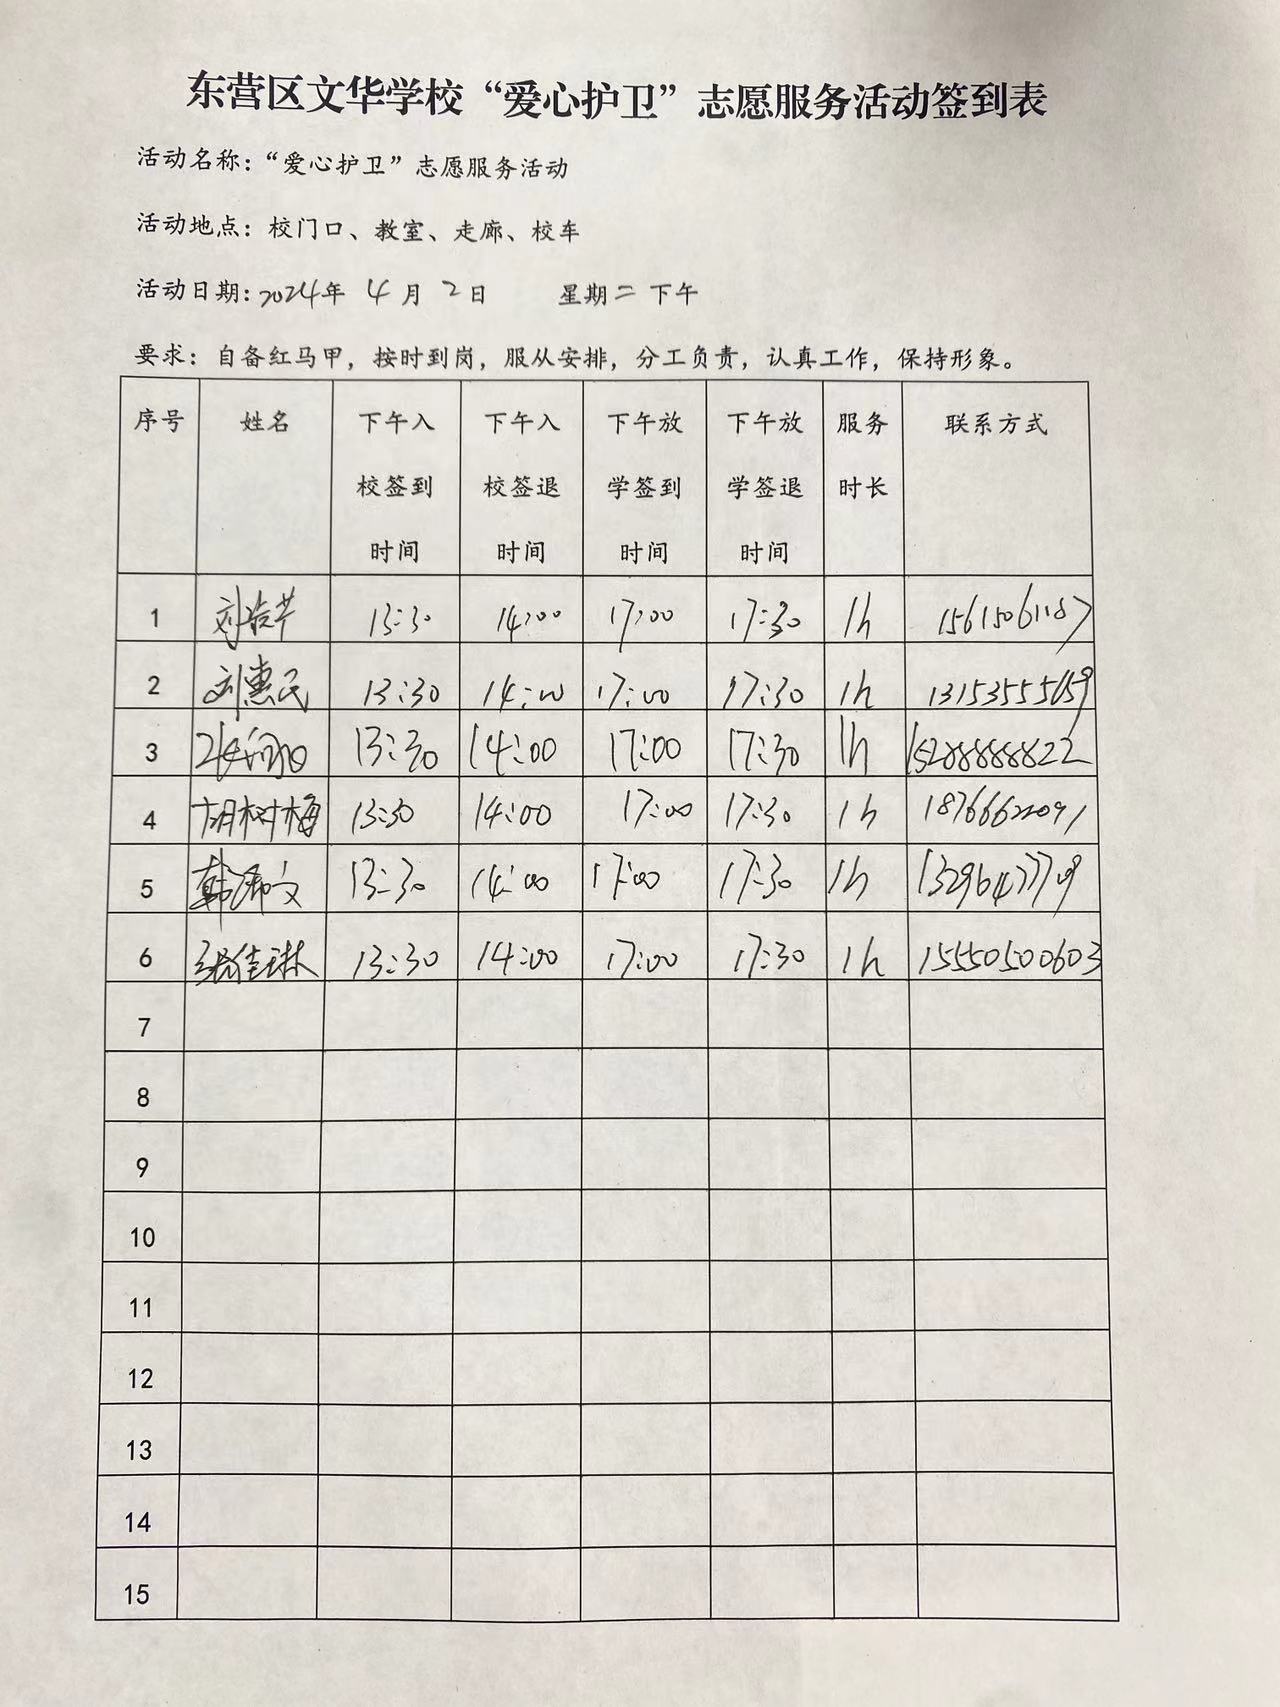 东营区文华学校“爱心护卫”志愿服务活动签到表
活动名称：“爱心护卫”志愿服务活动
活动地点：校门口、教室、走廊、校车
活动日期：2024年 4月 2日 星期二 下午
要求：自备红马甲，按时到岗，服从安排，分工负责，认真工作，保持形象。
序号 姓名 下午入校签到时间 下午入校签退时间 下午放学签到时间 下午放学签退时间 服务时长 联系方式
1 13:30 14:00 17:00 17:30 1h 15615061187
2 刘惠民 13:30 14:00 17:00 17:30 1h
3 13:30 14:00 17:00 17:30 1h 15288888822
4 胡树梅 13:30 14:00 17:00 17:30 1h
5 13:30 14:00 17:00 17:30 1h
6 张佳琳 13:30 14:00 17:00 17:30 1h 15550500603
7
8
9
10
11
12
13
14
15